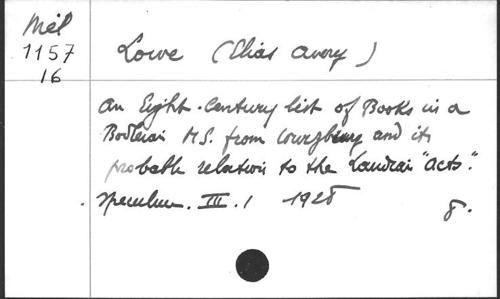 Mél
1157
16
Lowe (Elias Avery)
An Eight-Century list of Books in a
Bodleian MS. from Würzburg and its
probable relation to the Laudian "Acts".
Speculum. III. 1 1928 8.